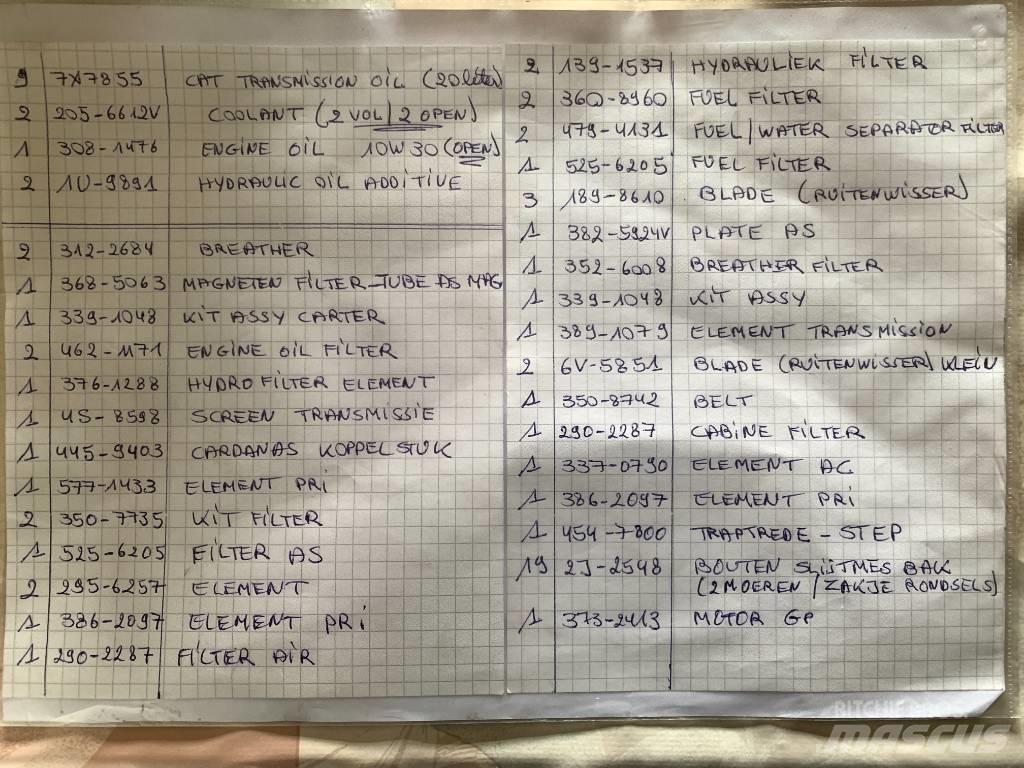 9 7X7855 CAT TRANSMISSION OIL (20 liter)
2 205-6612V COOLANT (2 VOL / 2 OPEN)
1 308-1476 ENGINE OIL 10W30 (OPEN)
2 1U-9891 HYDRAULIC OIL ADDITIVE
2 312-2684 BREATHER
1 368-5063 MAGNETEN FILTER-TUBE AS MAG
1 339-1048 KIT ASSY CARTER
2 462-1171 ENGINE OIL FILTER
1 376-1288 HYDRO FILTER ELEMENT
1 4S-8598 SCREEN TRANSMISSIE
1 445-9403 CARDANAS KOPPELSTUK
1 577-1433 ELEMENT PRI
2 350-7735 KIT FILTER
1 525-6205 FILTER AS
2 295-6257 ELEMENT
1 386-2097 ELEMENT PRI
1 290-2287 FILTER AIR
2 139-1537 HYDRAULIEK FILTER
2 360-8960 FUEL FILTER
2 479-4131 FUEL/WATER SEPARATOR FILTER
1 525-6205 FUEL FILTER
3 189-8610 BLADE (RUITENWISSER)
1 382-5924V PLATE AS
1 352-6008 BREATHER FILTER
1 339-1048 KIT ASSY
1 389-1079 ELEMENT TRANSMISSION
2 6V-5851 BLADE (RUITENWISSER) KLEIN
1 350-8742 BELT
1 290-2287 CABINE FILTER
1 337-0790 ELEMENT AC
1 386-2097 ELEMENT PRI
1 454-7800 TRAPTREDE - STEP
19 2J-2548 BOUTEN SLIJTMES BAK
(2 MOEREN / ZAKJE RONDSELS)
1 373-2413 MOTOR GP
RITCHIE
mascus